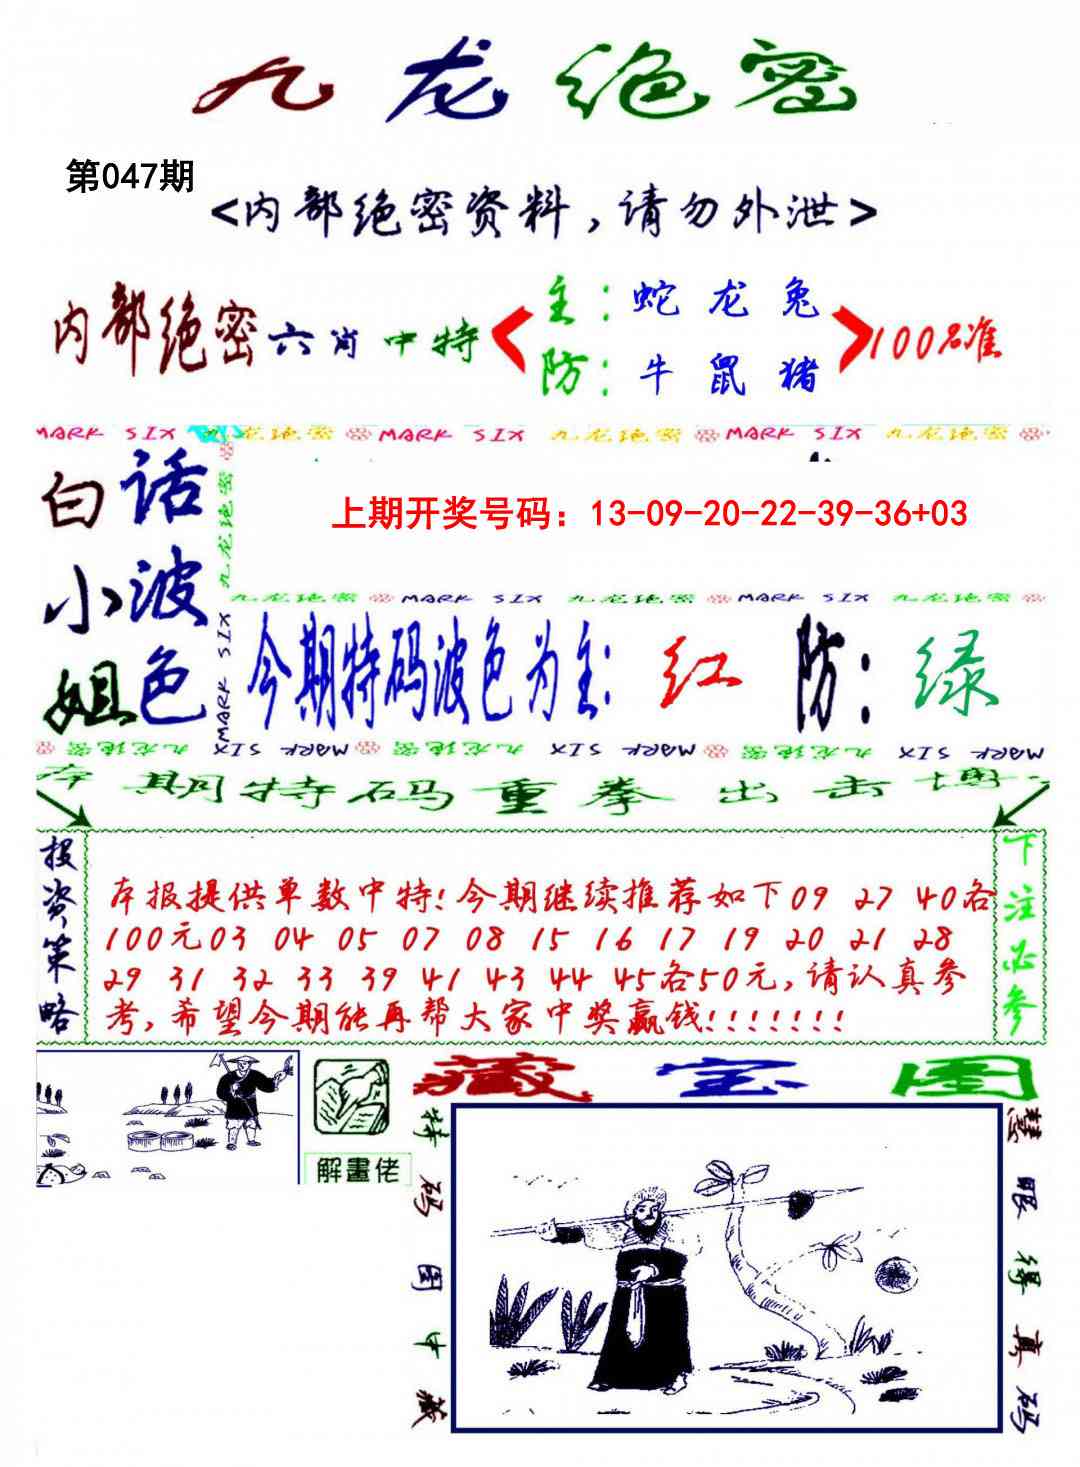 九龙绝密
第047期
<内部绝密资料,请勿外泄>
内部绝密六肖中特
主:蛇 龙 兔
防:牛 鼠 猪
100%准
MARK SIX 九龙绝密 MARK SIX 九龙绝密 MARK SIX 九龙绝密
白小姐
话波色
九龙绝密
MARK SIX
上期开奖号码：13-09-20-22-39-36+03
九龙绝密 MARK SIX 九龙绝密 MARK SIX 九龙绝密
今期特码波色为主: 红 防: 绿
九龙绝密 MARK SIX 九龙绝密 MARK SIX 九龙绝密 MARK SIX
本期特码重拳出击博
投资策略
本报提供单数中特!今期继续推荐如下09 27 40各
100元03 04 05 07 08 15 16 17 19 20 21 28
29 31 32 33 39 41 43 44 45各50元,请认真参
考,希望今期能再帮大家中奖赢钱!!!!!!!
下注必参
解畫佬
藏宝图
特码图中藏
慧眼得真码